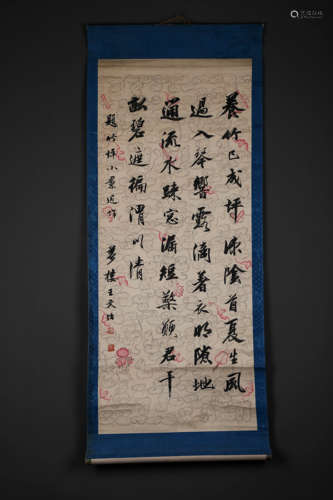 養竹已成坪涼陰首夏生風
過入琴響露滴著衣明隙地
通流水疎窗漏短檠願君千
畝碧遮徧渭川清
題竹坪小景近作
夢樓王文治